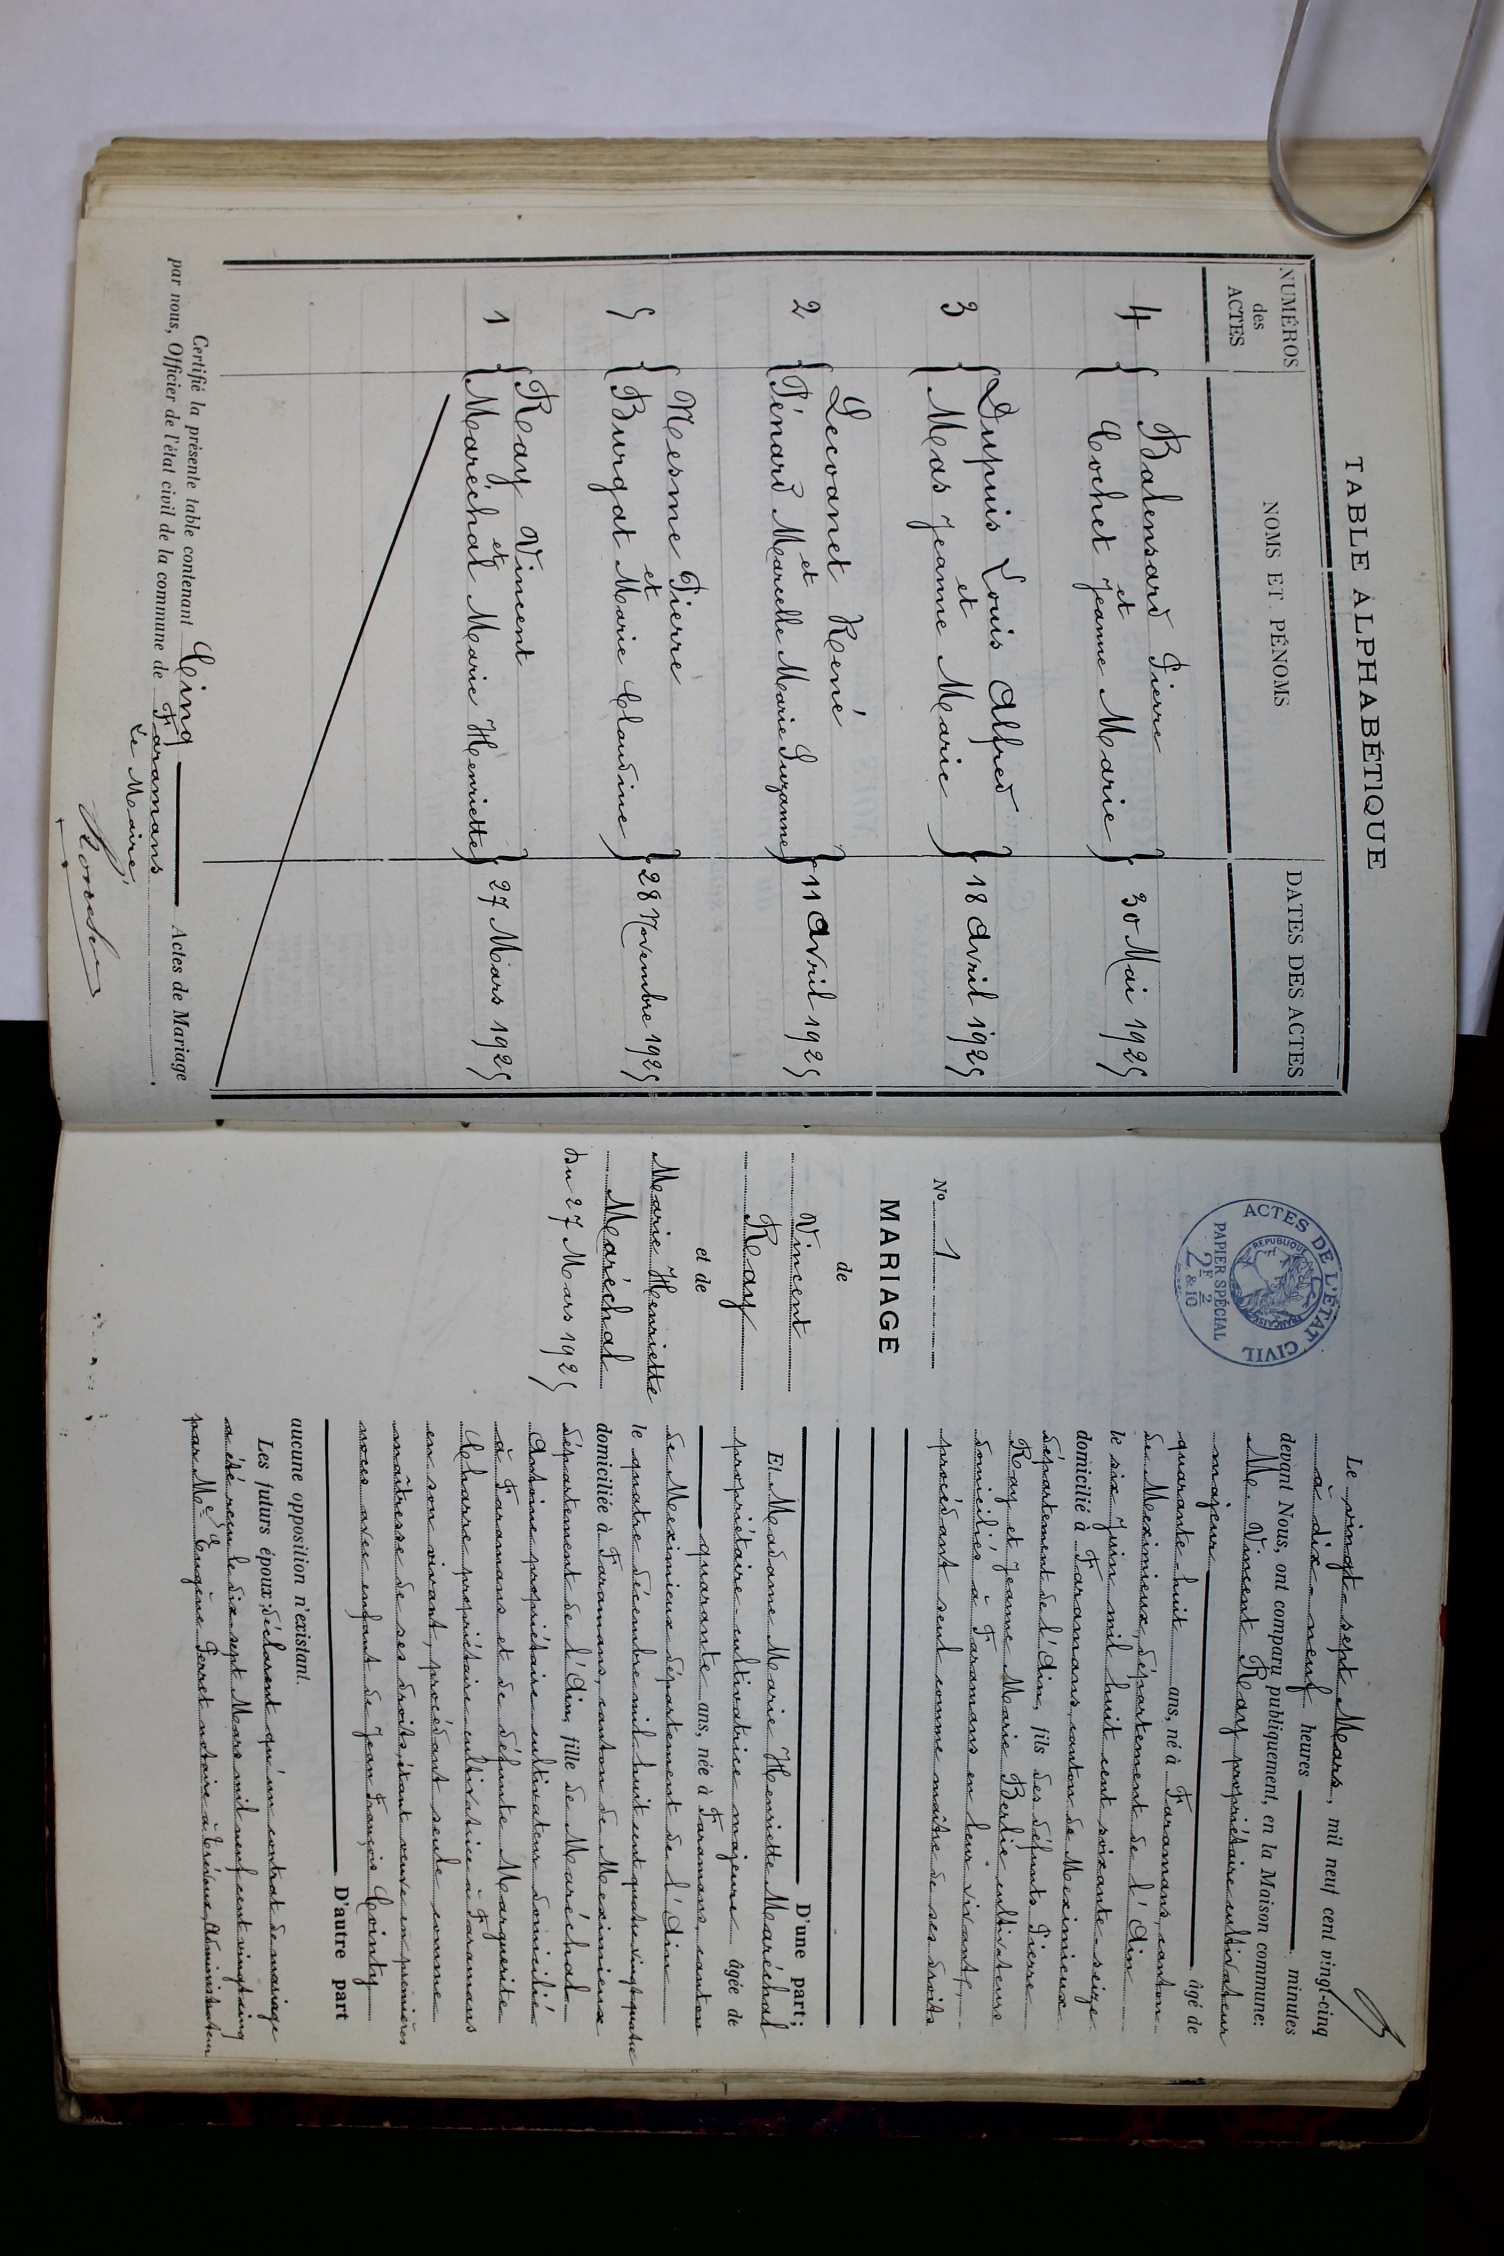 TABLE ALPHABÉTIQUE
NUMÉROS
des
ACTES
NOMS ET PÉNOMS
DATES DES ACTES
4 Balensard Pierre
et
Cochet Jeanne Marie
30 Mai 1925
3 Dupuis Louis Alfred
et
Mas Jeanne Marie
18 Avril 1925
2 Lecoanet René
et
Pénard Marcelle Marie Suzanne
11 Avril 1925
5 Mesme Pierre
et
Burgat Marie Claudine
28 Novembre 1925
1 Ray Vincent
et
Maréchal Marie Henriette
27 Mars 1925
Certifié la présente table contenant Cinq Actes de Mariage
par nous, Officier de l'état civil de la commune de Faramans
Le Maire,
ACTES DE L'ÉTAT CIVIL
REPUBLIQUE FRANÇAISE
PAPIER SPÉCIAL
2F 2
2 & 10
No 1
MARIAGE
de
Vincent
Ray
et de
Marie Henriette
Maréchal
Du 27 Mars 1925
Le vingt-sept Mars, mil neuf cent vingt-cinq
à dix-neuf heures minutes
devant Nous, ont comparu publiquement, en la Maison commune:
M. Vincent Ray propriétaire cultivateur
majeur âgé de
quarante-huit ans, né à Faramans, canton
de Meximieux, département de l'Ain
le six Juin mil huit cent soixante-seize
domicilié à Faramans, canton de Meximieux
département de l'Ain, fils des défunts Pierre
Ray et Jeanne Marie Berlie cultivateurs
domiciliés à Faramans en leur vivant,
procédant seul comme maître de ses droits
D'une part;
Et Madame Marie Henriette Maréchal
propriétaire-cultivatrice majeure âgée de
quarante ans, née à Faramans, canton
de Meximieux département de l'Ain
le quatre décembre mil huit cent quatre vingt quatre
domiciliée à Faramans, canton de Meximieux
département de l'Ain, fille de Maréchal
Antoine propriétaire cultivateur domicilié
à Faramans et de défunte Marguerite
Charre propriétaire cultivatrice à Faramans
en son vivant, procédant seule, comme
maîtresse de ses droits, étant veuve en premières
noces avec enfant de Jean François Cointy
D'autre part
aucune opposition n'existant.
Les futurs époux déclarent qu'un contrat de mariage
a été reçu le dix-sept Mars mil neuf cent vingt cinq
par Me Eugène Perret notaire à Trévoux, Administrateur